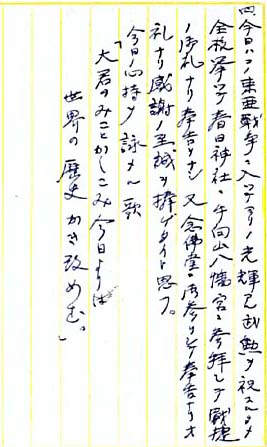 四、今日ハコノ東亜戦争ニ入ツテヨリノ光輝アル武勲ヲ祝スルタメ
全校挙ツテ春日神社ト手向山八幡宮ニ参拝シテ戦捷
ノ御礼ナリ奉告ヲナシ 又念佛堂ニ御参リシテ奉告ナリ又
礼ナリ感謝ノ至誠ヲ捧ゲタイト思フ。
今日ノ心持ヲ詠メル歌
「大君のみことかしこみ今日よりは
世界の歴史かき改めむ。」